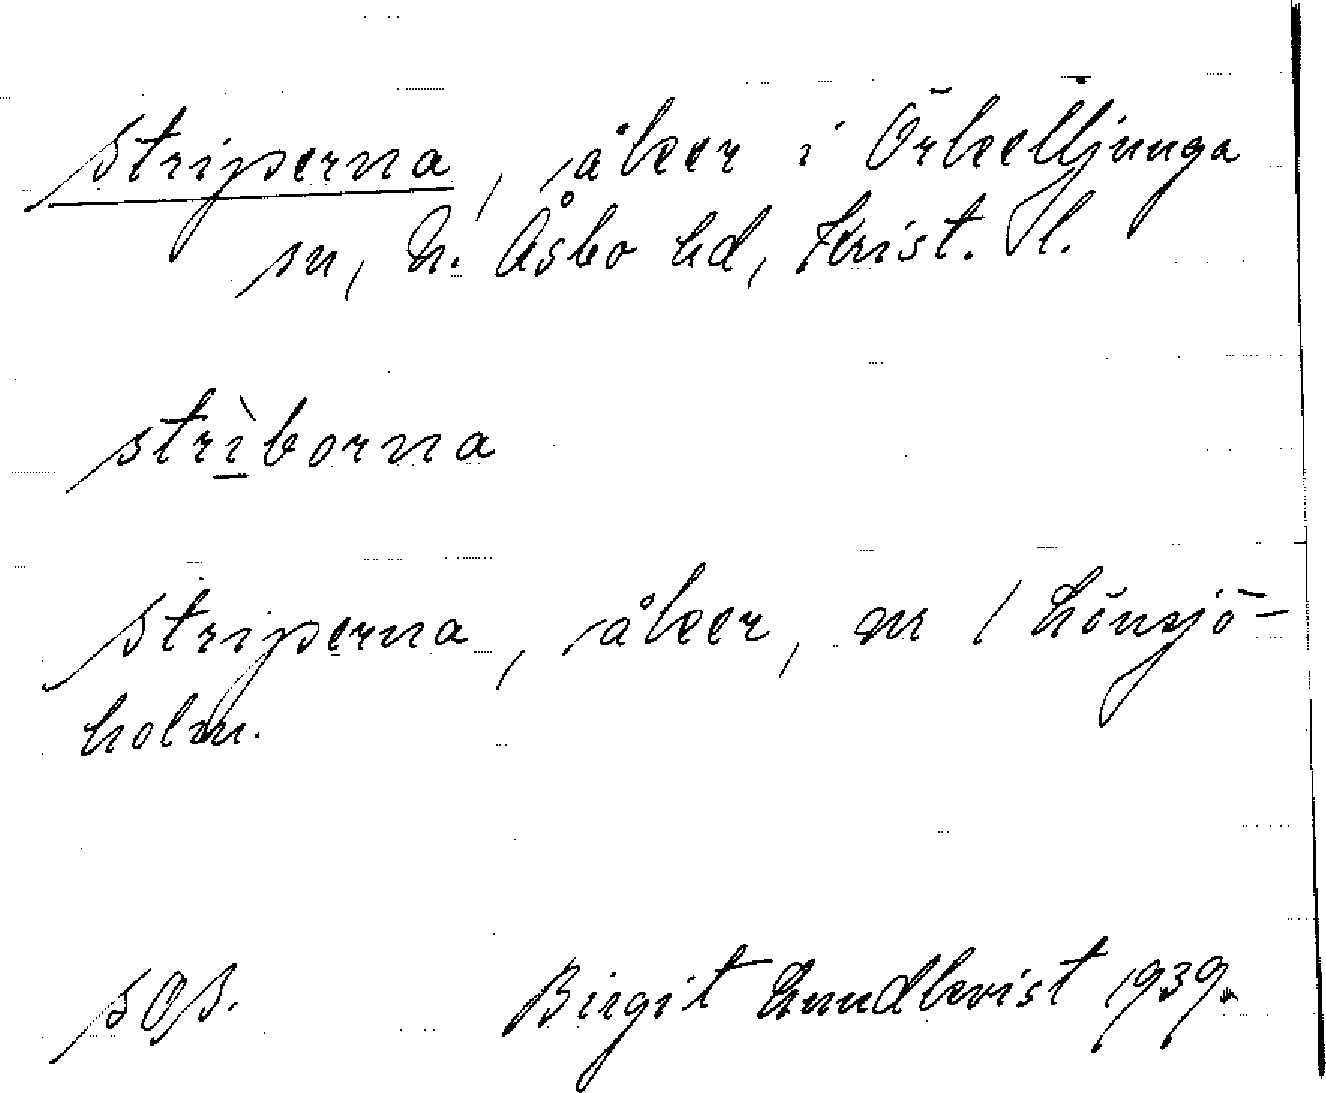 Striperna, åker i Örkelljunga
sn, N. Åsbo hd, Krist. l.
strìborna
Striperna, åker, nr 1 Lönsjö-
holm.
sOs. Birgit Lundkvist 1939.